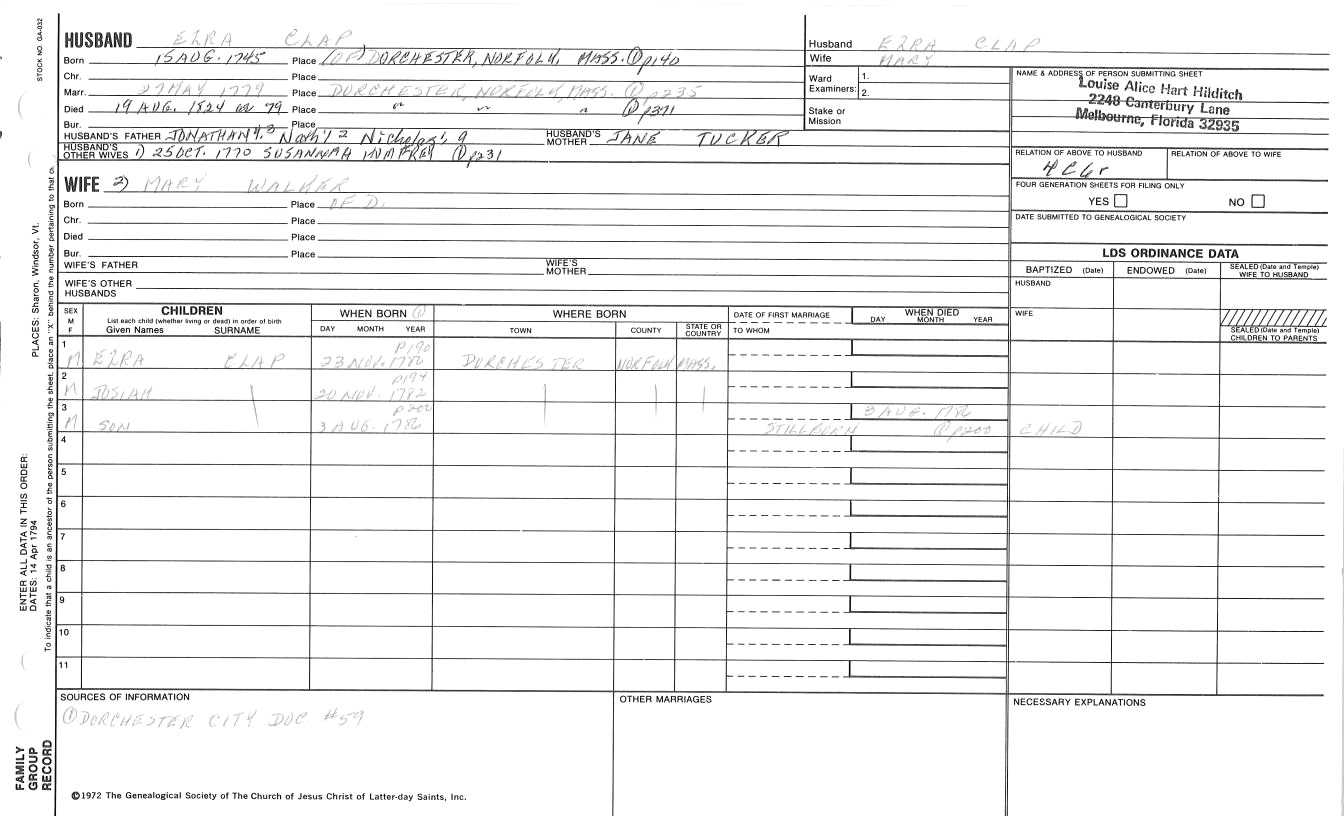 STOCK NO. GA-032
HUSBAND EZRA CLAP
Born 15 AUG. 1745 Place (OF) DORCHESTER, NORFOLK, MASS. ① p140
Chr. Place
Marr. 27 MAY 1779 Place DORCHESTER, NORFOLK, MASS. ① p235
Died 19 AUG. 1824 ae 79 Place " " " ① p371
Bur. Place
HUSBAND'S FATHER JONATHAN 4, 3 Nath'l 2 Nicholas 1, 9 HUSBAND'S MOTHER JANE TUCKER
HUSBAND'S OTHER WIVES 1) 25 OCT. 1770 SUSANNAH HUMFREY ① p231
WIFE 2) MARY WALKER
Born Place OF D.
Chr. Place
Died Place
Bur. Place
WIFE'S FATHER WIFE'S MOTHER
WIFE'S OTHER HUSBANDS
Husband EZRA CLAP
Wife MARY
Ward Examiners: 1. 2.
Stake or Mission
NAME & ADDRESS OF PERSON SUBMITTING SHEET
Louise Alice Hart Hilditch
2248 Canterbury Lane
Melbourne, Florida 32935
RELATION OF ABOVE TO HUSBAND RELATION OF ABOVE TO WIFE
4C6r
FOUR GENERATION SHEETS FOR FILING ONLY
YES NO
DATE SUBMITTED TO GENEALOGICAL SOCIETY
LDS ORDINANCE DATA
BAPTIZED (Date) ENDOWED (Date) SEALED (Date and Temple) WIFE TO HUSBAND
HUSBAND
WIFE
SEALED (Date and Temple) CHILDREN TO PARENTS
SEX M F CHILDREN WHEN BORN ① WHERE BORN DATE OF FIRST MARRIAGE WHEN DIED
List each child (whether living or dead) in order of birth
Given Names SURNAME DAY MONTH YEAR TOWN COUNTY STATE OR COUNTRY TO WHOM DAY MONTH YEAR
1 p190
M EZRA CLAP 23 NOV. 1780 DORCHESTER NORFOLK MASS.
2 p194
M JOSIAH 20 NOV. 1782
3 p200 3 AUG. 1786
M SON 3 AUG. 1786 STILLBORN ① p200 CHILD
4
5
6
7
8
9
10
11
SOURCES OF INFORMATION OTHER MARRIAGES NECESSARY EXPLANATIONS
① DORCHESTER CITY DOC #59
©1972 The Genealogical Society of The Church of Jesus Christ of Latter-day Saints, Inc.
FAMILY GROUP RECORD
ENTER ALL DATA IN THIS ORDER:
DATES: 14 Apr 1794
PLACES: Sharon, Windsor, Vt.
To indicate that a child is an ancestor of the person submitting the sheet, place an "X" behind the number pertaining to that c.